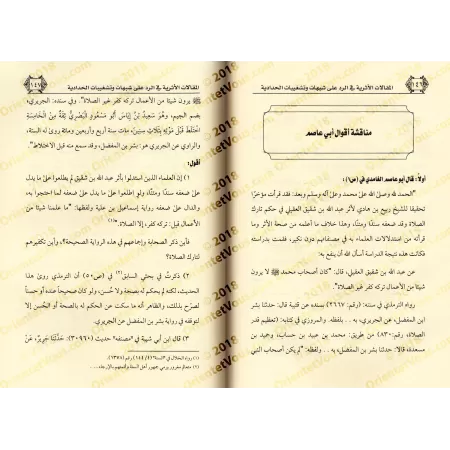 ١٤٦
المقالات الأثرية في الرد على شبهات وتشغيبات الحدادية
مناقشة أقوال أبي عاصم
أولا: قال أبو عاصم الغامدي في (ص١):
"الحمد لله وصلى الله على محمد وعلى آله وسلم وبعد: فقد قرأت مؤخرًا
تحقيقا للشيخ ربيع بن هادي لأثر عبد الله بن شقيق العقيلي في حكم تارك
الصلاة وقد ضعفه سندًا ومتنًا، وهذا خلاف ما أعلمه من صحة الأثر وما
قرأته من استدلالات العلماء به في مصنفاتهم دون نكير، فقمت بدراسته
فكانت هذه نتيجة الدراسة أسأل الله أن ينفع به.
عن عبد الله بن شقيق العقيلي، قال: "كان أصحاب محمد ﷺ لا يرون
شيئا من الأعمال تركه كفر غير الصلاة".
رواه الترمذي في سننه: (رقم: ٢٦٦٧) بسنده عن قتيبة قال: حدثنا بشر
ابن المفضل، عن الجريري، به .. بلفظه. والمروزي في كتابه: (تعظيم قدر
الصلاة، رقم: ٨٣٠) من طريق: محمد بن عبيد بن حساب، وعبيد بن
مسعدة، قالا: حدثنا بشر بن المفضل، به .. بلفظه: "لم يكن أصحاب النبي
المقالات الأثرية في الرد على شبهات وتشغيبات الحدادية
١٤٧
ﷺ يرون شيئا من الأعمال تركه كفر غير الصلاة". وفي سنده: الجريري،
بضم الجيم، وهو سعيد بن إياس أبو مسعود البصري ثقة من الخامسة
اختلط قبل موته بثلاث سنين، مات سنة أربع وأربعين ومائة روى له الستة،
والراوي عن الجريري هو: بشر بن المفضل، وقد سمع منه قبل الاختلاط".
أقول:
١) إن العلماء الذين استدلوا بأثر عبد الله بن شقيق لم يطلعوا على ما يدل
على ضعفه سندًا ومتنًا، ولو اطلعوا على ما يدل على ضعفه لما احتجوا به،
والدال على ضعفه رواية إسماعيل بن علية ولفظها: "ما علمنا شيئا من
الأعمال قيل: تركه كفر، إلا الصلاة".(١)
فأين ذكر الصحابة وإجماعهم في هذه الرواية الصحيحة؟ وأين تكفيرهم
لتارك الصلاة؟
٢) ذكرت في بحثي السابق(٢) في (ص٥٠) أن الترمذي روى هذا
الحديث، لكنه لم يحكم له بصحة ولا حسن، ولو كان صحيحا عنده أو حسنا
لصرح بذلك، والظاهر أنه ما سكت عن الحكم له بالصحة أو الحسن إلا
لتوقفه في رواية بشر بن المفضل.
٣) قال ابن أبي شيبة في "مصنفه" حديث (٣٠٩٦٠): حدثنا جرير، عن
(١) رواه الخلال في "السنة" (٤/١٤٤)، رقم: (١٣٧٨).